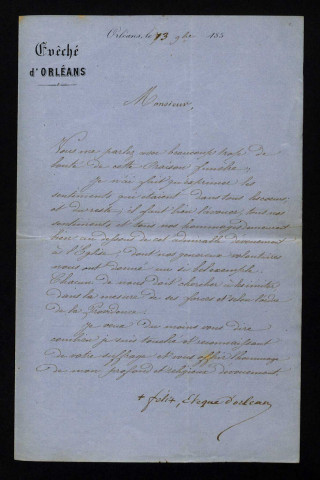 Evêché
d'ORLÉANS
Orléans, le 13 9bre 185
Monsieur,
Vous me parlez avec beaucoup trop de
bonté de cette Oraison funèbre.
Je n'ai fait qu'exprimer les
sentiments qui étaient dans tous les cœurs
et du reste, il faut bien l'avouer, tous nos
sentiments et tous nos hommages demeurent
bien au dessous de cet admirable dévouement
à l'Eglise, dont nos généreux volontaires
nous ont donné un si bel exemple.
Chacun de nous doit chercher à les imiter
dans la mesure de ses forces et selon l'ordre
de la Providence.
Je veux du moins vous dire
combien je suis touché et reconnaissant
de votre suffrage et vous offrir l'hommage
de mon profond et religieux dévouement.
+ Félix, Evêque d'orléans